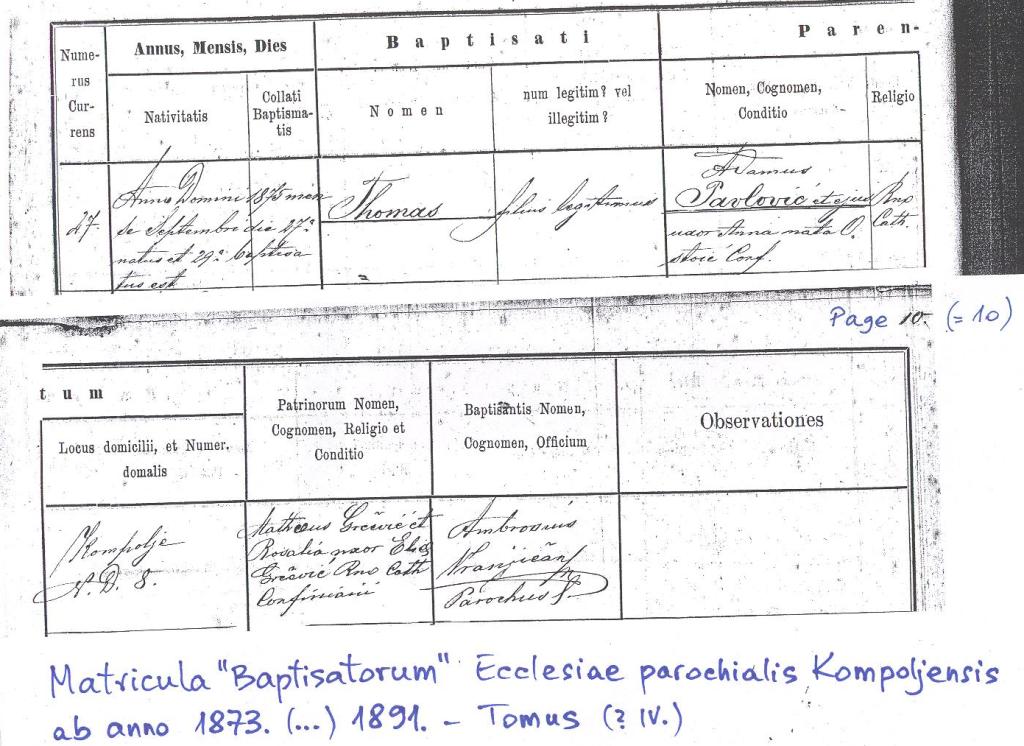 Nume-
rus
Cur-
rens
Annus, Mensis, Dies
Nativitatis
Collati
Baptisma-
tis
Baptisati
Nomen
num legitim? vel
illegitim?
Paren-
Nomen, Cognomen,
Conditio
Religio
27.
Anno Domini 1875 men
se Septembri die 27ª
natus et 29ª baptisa
tus est
Thomas
filius legitimus
Adamus
Pavlović et ejus
uxor Anna nata O
stoić Conf.
Rno
Cath.
Page 10. (=10)
tum
Locus domicilii, et Numer.
domalis
Patrinorum Nomen,
Cognomen, Religio et
Conditio
Baptisantis Nomen,
Cognomen, Officium
Observationes
Kompolje
N. D. 8.
Matheus Grčević et
Rosalia uxor
Rno Cath
Confiniarii
Ambrosius
Vranjičan
Parochus
Matricula "Baptisatorum" Ecclesiae parochialis Kompoljensis
ab anno 1873. (...) 1891. - Tomus (? IV.)